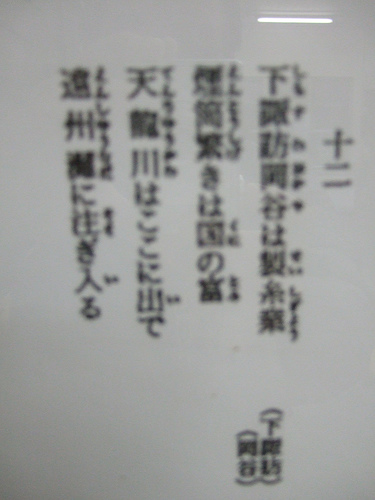 十二
下諏訪岡谷は製糸業
煙筒繁きは国の富
天龍川はここに出で
遠州灘に注ぎ入る
(下諏訪)
(岡谷)